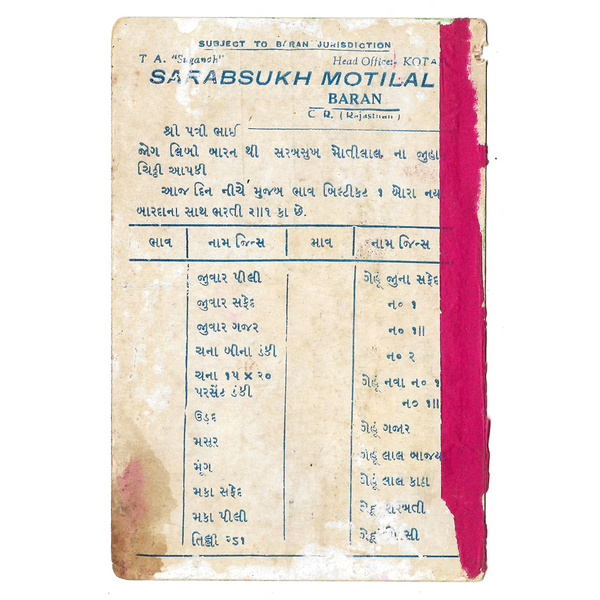 SUBJECT TO BARAN JURISDICTION
T A. "Suganch" Head Office:- KOTA
SARABSUKH MOTILAL
BARAN
C R. (Rajasthan)
શ્રી પત્રી ભાઈ
જોગ લિખી બારન થી સરબસુખ મોતીલાલ ના જુહા
ચિઠ્ઠી આપકી
આજ દિન નીચે મુજબ ભાવ બિલ્ટીકટ ૧ બોરા નય
બારદાના સાથ ભરતી ૨ા૧ કા છે.
ભાવ નામ જિન્સ ભાવ નામ જિન્સ
જુવાર પીલી ગેહૂં જુના સફેદ
જુવાર સફેદ ન૦ ૧
જુવાર ગજર ન૦ ૧ા
ચના બીના ડંકી ન૦ ૨
ચના ૧૫ X ૨૦ ગેહૂં નવા ન૦ ૧
પરસેંટ ડંકી ન૦ ૧ા
ઉડદ ગેહૂં ગજર
મસૂર ગેહૂં લાલ બાજય
મૂંગ ગેહૂં લાલ કાઠા
મકા સફેદ શરબતી
મકા પીલી સી
તિલ્લી